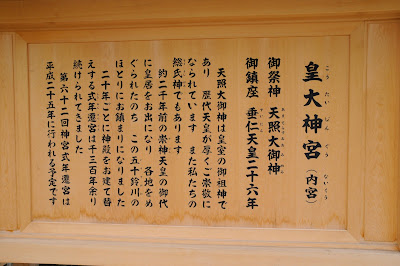 皇大神宮(内宮)
こうたいじんぐうないくう
御祭神 天照大御神
あまてらすおおみかみ
御鎮座 垂仁天皇二十六年
天照大御神は皇室の御祖神で
あり 歴代天皇が厚くご崇敬に
なられています また私たちの
総氏神でもあります
約二千年前の崇神天皇の御代
に皇居をお出になり 各地をめ
ぐられたのち この五十鈴川の
ほとりにお鎮まりになりました
二十年ごとに神殿をお建て替
えする式年遷宮は千三百年余り
続けられてきました
第六十二回神宮式年遷宮は
平成二十五年に行われる予定です